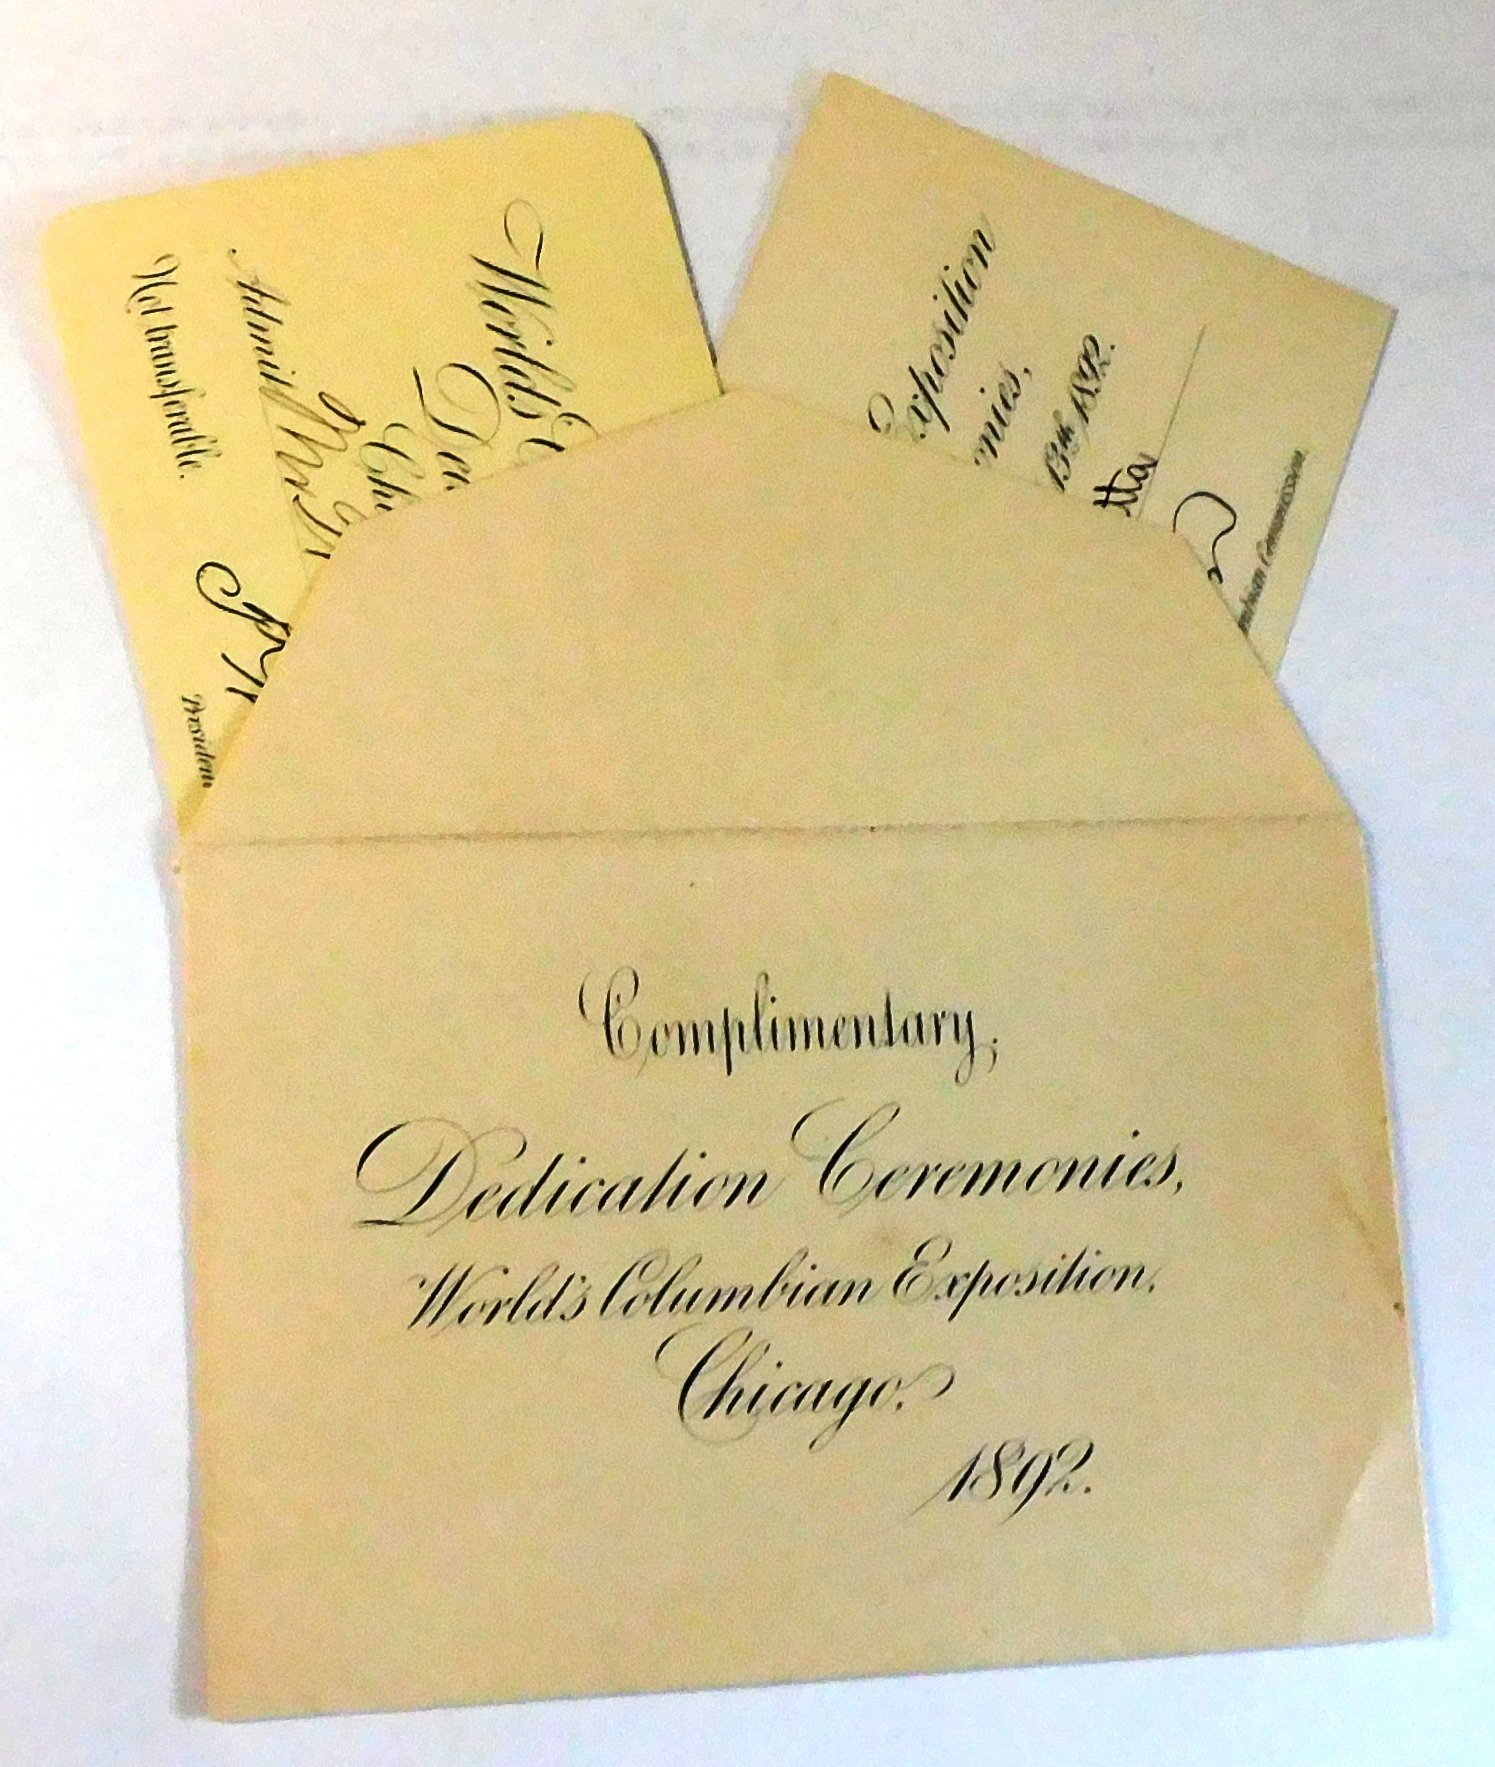 World's
Ded
Chi
Admit Mrs
Not transferable.
Presiden
Exposition
nies,
13th 1892.
Complimentary,
Dedication Ceremonies,
World's Columbian Exposition,
Chicago.
1892.